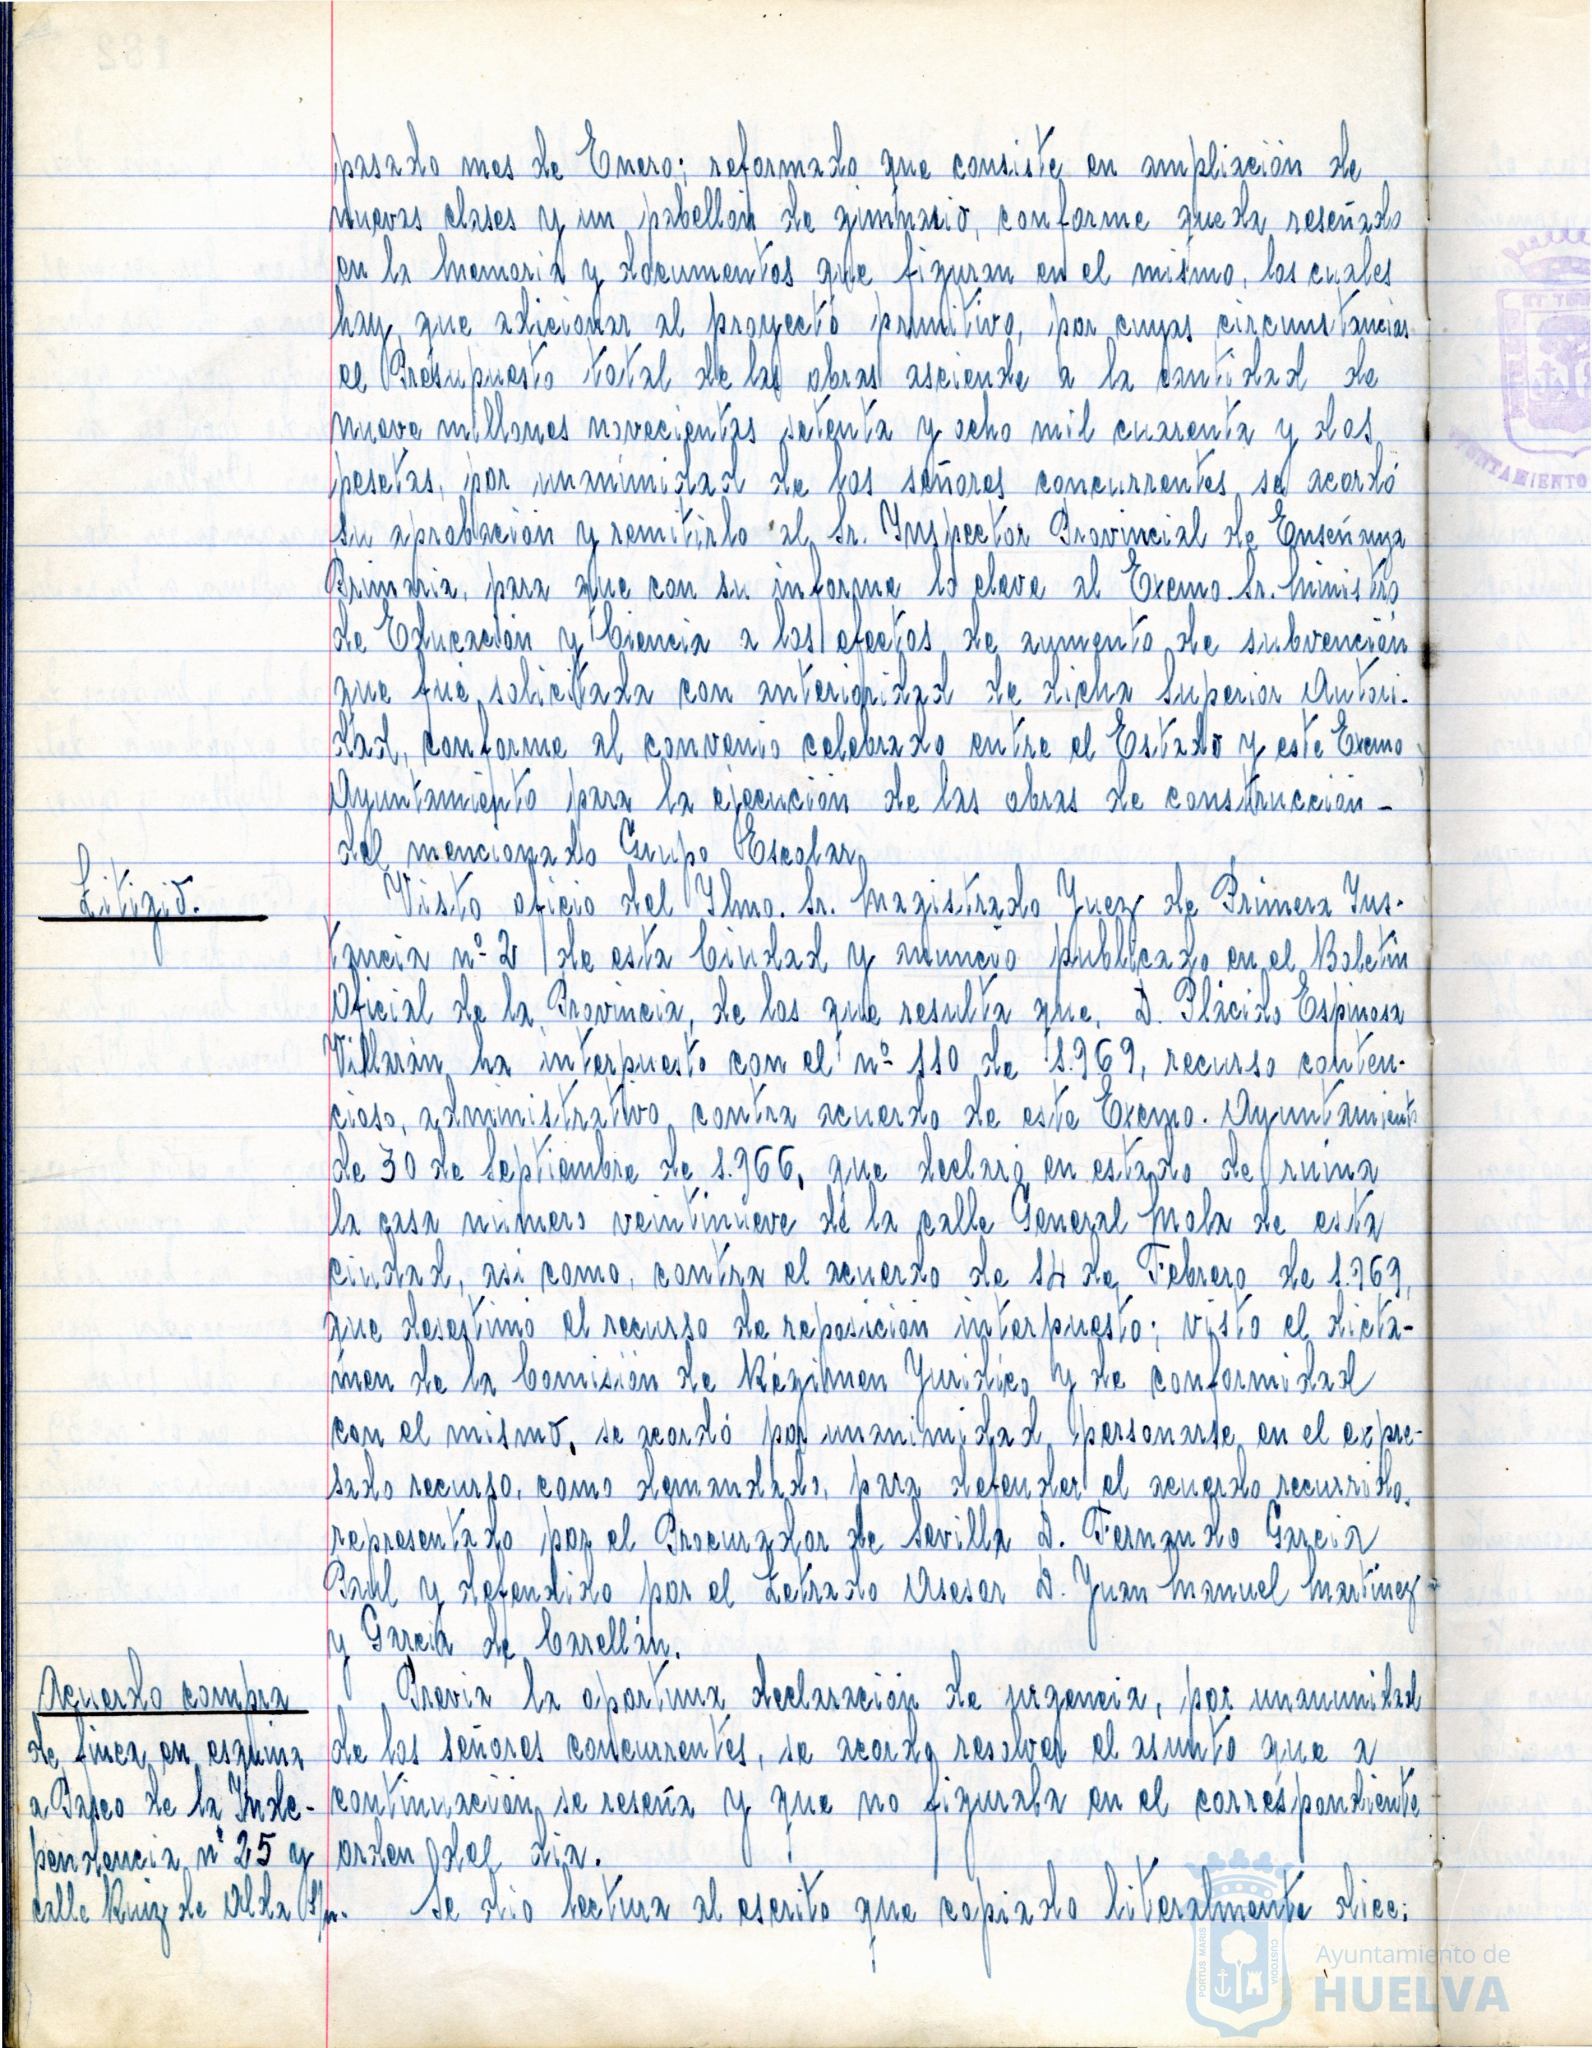 pasado mes de Enero; reformado que consiste en ampliación de
nuevas clases y un pabellón de gimnasio, conforme queda reseñado
en la Memoria y documentos que figuran en el mismo, los cuales
hay que adicionar al proyecto primitivo, por cuyas circunstancias
el Presupuesto total de las obras asciende a la cantidad de
nueve millones novecientas setenta y ocho mil cuarenta y dos
pesetas, por unanimidad de los señores concurrentes se acordó
su aprobación y remitirlo al Sr. Inspector Provincial de Enseñanza
Primaria, para que con su informe lo eleve al Excmo. Sr. Ministro
de Educación y Ciencia a los efectos de aumento de subvención
que fué solicitada con anterioridad de dicha Superior Autori-
dad, conforme al convenio celebrado entre el Estado y este Excmo
Ayuntamiento para la ejecución de las obras de construcción-
del mencionado Grupo Escolar.
Litigio.
Visto oficio del Ilmo. Sr. Magistrado Juez de Primera Ins-
tancia nº 2 de esta Ciudad y anuncio publicado en el Boletín
Oficial de la Provincia, de los que resulta que, D. Plácido Espinosa
Villarán ha interpuesto con el nº 110 de 1.969, recurso conten-
cioso, administrativo contra acuerdo de este Excmo. Ayuntamiento
de 30 de Septiembre de 1.966, que declaró en estado de ruina
la casa número veintinueve de la calle General Mola de esta
ciudad, asi como, contra el acuerdo de 14 de Febrero de 1.969,
que desestimó el recurso de reposición interpuesto; visto el dicta-
men de la Comisión de Régimen Juridico y de conformidad
con el mismo, se acordó por unanimidad personarse en el expre-
sado recurso, como demandado, para defender el acuerdo recurrido,
representado por el Procurador de Sevilla D. Fernando García
Paul y defendido por el Letrado Asesor D. Juan Manuel Martinez
y García de
Acuerdo compra
de finca en esquina
a Paseo de la Inde-
pendencia nº 25 y
calle Ruiz de Alda S/n.
Previa la oportuna declaración de urgencia, por unanimidad
de los señores concurrentes, se acordó resolver el asunto que a
continuación se reseña y que no figuraba en el correspondiente
orden del dia.
Se dio lectura al escrito que copiado literalmente dice:
AYUNTAMIENTO
PORTUS MARIS
CUSTODIA
Ayuntamiento de
HUELVA